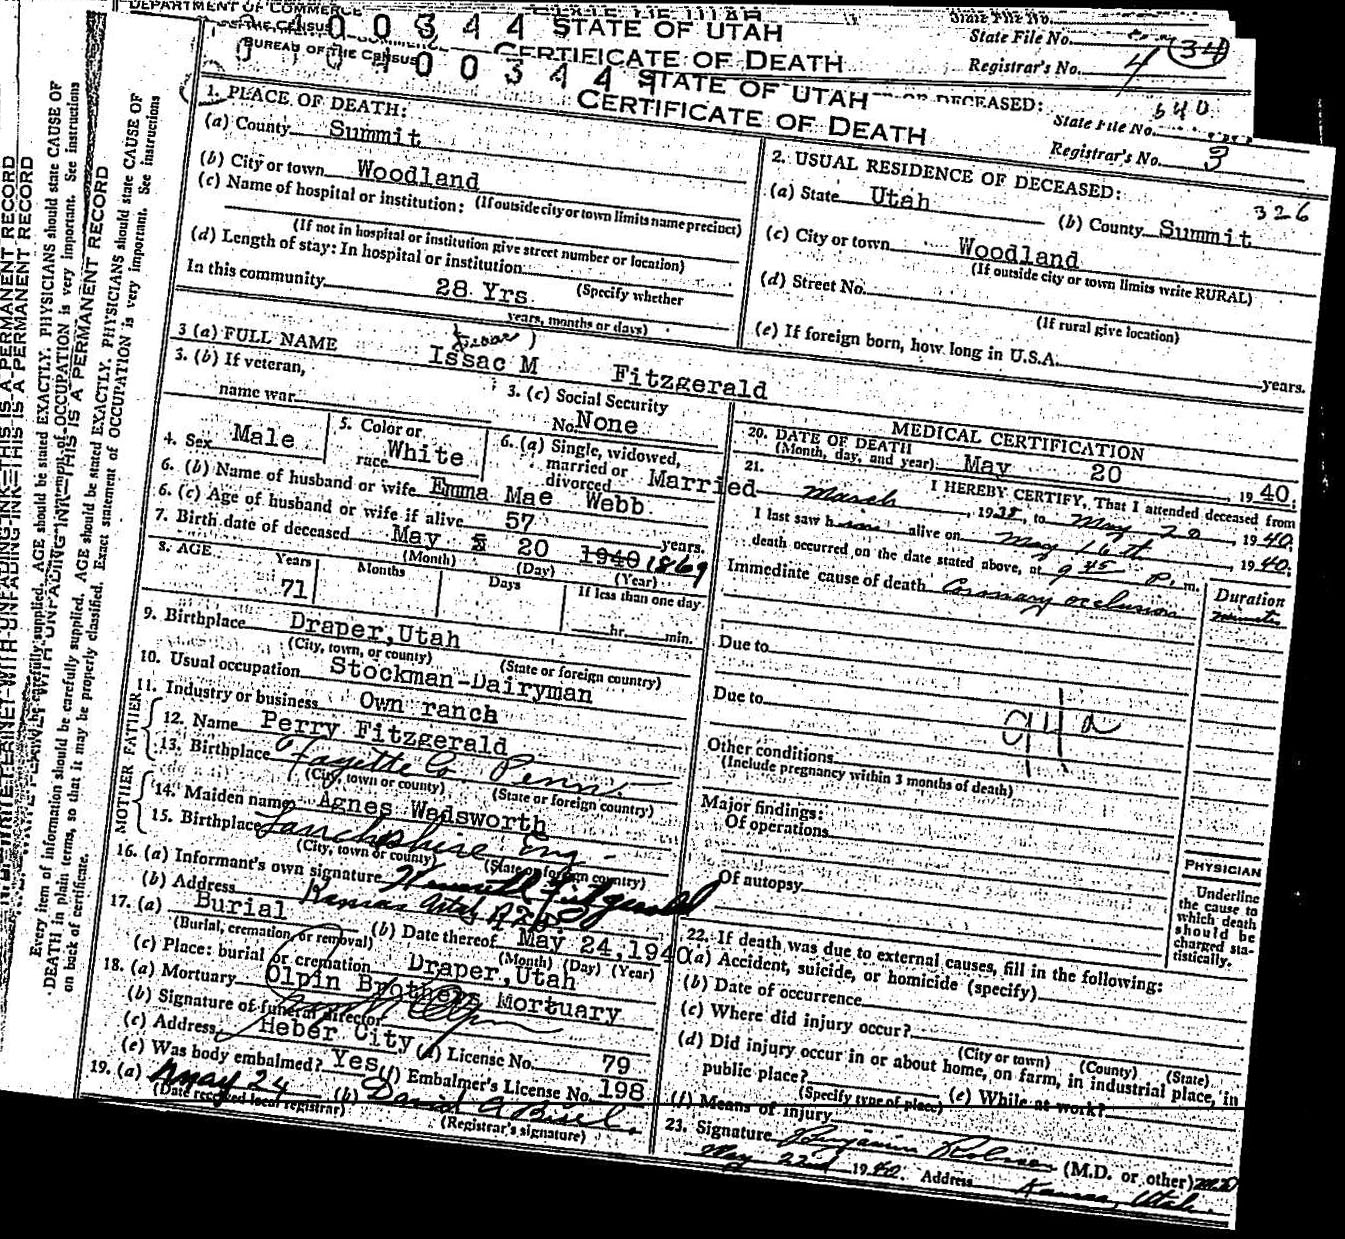 DEPARTMENT OF COMMERCE
BUREAU OF THE CENSUS
00344 STATE OF UTAH
CERTIFICATE OF DEATH
State File No.
State File No. 34
Registrar's No. 4
00344 STATE OF UTAH
CERTIFICATE OF DEATH
OF DECEASED:
640
State File No.
Registrar's No. 3
1. PLACE OF DEATH:
(a) County Summit
(b) City or town Woodland
(c) Name of hospital or institution: (If outside city or town limits name precinct)
(If not in hospital or institution give street number or location)
(d) Length of stay: In hospital or institution
In this community 28 Yrs. (Specify whether
years, months or days)
2. USUAL RESIDENCE OF DECEASED:
326
(a) State Utah (b) County Summit
(c) City or town Woodland
(If outside city or town limits write RURAL)
(d) Street No.
(If rural give location)
(e) If foreign born, how long in U.S.A. years.
(Isaac)
3 (a) FULL NAME Issac M Fitzgerald
3. (b) If veteran,
name war
3. (c) Social Security
No. None
4. Sex Male
5. Color or
race White
6. (a) Single, widowed,
married or
divorced Married
6. (b) Name of husband or wife Emma Mae Webb
6. (c) Age of husband or wife if alive 57 years.
7. Birth date of deceased May 20 1940 1869
(Month) (Day) (Year)
8. AGE
Years Months Days If less than one day
71 hr. min.
9. Birthplace Draper, Utah
(City, town, or county) (State or foreign country)
10. Usual occupation Stockman-Dairyman
11. Industry or business Own ranch
FATHER
12. Name Perry Fitzgerald
13. Birthplace Fayette Co. Penn.
(City, town or county) (State or foreign country)
MOTHER
14. Maiden name Agnes Wadsworth
15. Birthplace Lancheshire Eng.
(City, town or county) (State or foreign country)
16. (a) Informant's own signature Fitzgerald
(b) Address Kamas Utah
17. (a) Burial (b) Date thereof May 24, 1940
(Burial, cremation, or removal) (Month) (Day) (Year)
(c) Place: burial or cremation Draper, Utah
18. (a) Mortuary Olpin Brothers Mortuary
(b) Signature of funeral director
(c) Address Heber City (d) License No. 79
(e) Was body embalmed? Yes (f) Embalmer's License No. 198
19. (a) May 24 (b) David A
(Date received local registrar) (Registrar's signature)
MEDICAL CERTIFICATION
20. DATE OF DEATH
(Month, day, and year) May 20, 1940;
21. I HEREBY CERTIFY, That I attended deceased from
March, 1938, to May 20, 1940;
I last saw him alive on May 16th, 1940;
death occurred on the date stated above, at 9 45 P. m.
Immediate cause of death Coronary occlusion
Duration
minutes
Due to
Due to
94a
Other conditions
(Include pregnancy within 3 months of death)
Major findings:
Of operations
Of autopsy
PHYSICIAN
Underline
the cause to
which death
should be
charged sta-
tistically.
22. If death was due to external causes, fill in the following:
(a) Accident, suicide, or homicide (specify)
(b) Date of occurrence
(c) Where did injury occur?
(City or town) (County) (State)
(d) Did injury occur in or about home, on farm, in industrial place, in
public place?
(Specify type of place) (e) While at work?
(f) Means of injury
23. Signature Benjamin (M.D. or other) M.D.
May 22nd 1940 Address Kamas, Utah.
THIS IS A PERMANENT RECORD
Every item of information should be carefully supplied. AGE should be stated EXACTLY. PHYSICIANS should state CAUSE OF
DEATH in plain terms, so that it may be properly classified. Exact statement of OCCUPATION is very important. See instructions
on back of certificate.